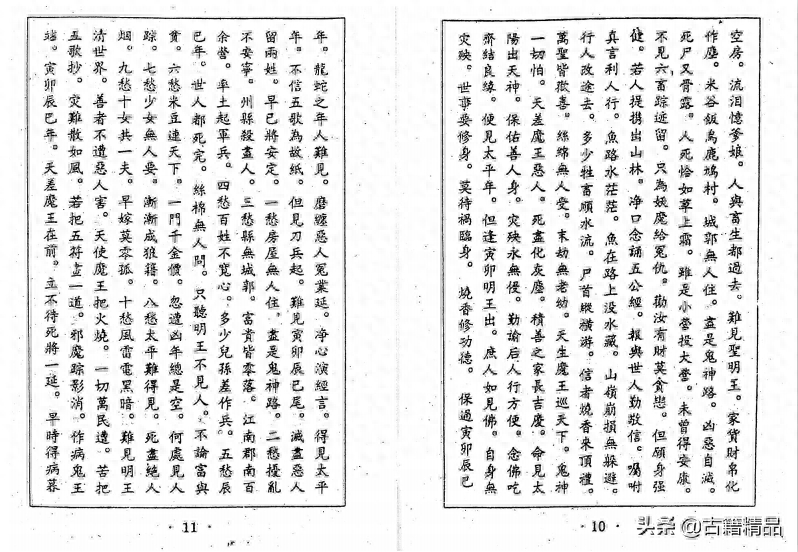 空房。流泪憶爹娘。人與畜生都過去。難見聖明王。家貨財帛化
作塵。米谷飯為鹿鳩村。城郭無人住。盡是鬼神路。凶惡自滅。
死尸又骨露。人死恰如草上霜。雖是小營投大營。未曾得安康。
不見六畜踪迹留。只為妖魔給冤仇。勸汝有財莫貪戀。但願身强
健。若人提携出山林。净口念誦五公經。報與世人勤敬信。囑咐
真言利人行。魚路水茫茫。魚在路上没水藏。山嶺崩損無躲避。
行人改途去。多少牲畜順水流。尸首縱横游。信者燒香來頂禮。
萬聖皆歡喜。絲綿無人受。末劫無老幼。天生魔王巡天下。鬼神
一切怕。天差魔王惡人。死盡化灰塵。積善之家長吉慶。命見太
陽出天神。保佑善人身。灾殃永無侵。勤諭后人行方便。念佛吃
齋結良緣。便見太平年。但逢寅卯明王出。庶人如見佛。自身無
灾殃。世事要修身。莫待禍臨身。燒香修功德。保過寅卯辰巳
· 10 ·
年。龍蛇之年人難見。磨纏惡人冤業延。净心演經言。得見太平
年。不信五歌為故紙。但見刀兵起。難見寅卯辰巳尾。滅盡惡人
留兩姓。早已將安定。一愁房屋無人住。盡是鬼神路。二愁擾亂
不安寧。州縣殺盡人。三愁縣無城郭。富貴皆零落。江南郡南百
余營。率土起軍兵。四愁百姓不寬心。多少兒孫差作兵。五愁辰
巳年。世人都死完。絲棉無人問。只聽明王不見人。不論富與
貧。六愁米豆連天下。一門千金價。忽遭凶年總是空。何處見人
踪。七愁少女無人要。漸漸成狼籍。八愁太平難得見。死盡絕人
烟。九愁十女共一夫。早嫁莫零孤。十愁風雷電黑暗。難見明王
清世界。善者不遭惡人害。天使魔王把火燒。一切萬民遭。苦把
五歌抄。灾難散如風。若把五符查一道。邪魔踪影消。作病鬼王
站。寅卯辰巳年。天差魔王在前。立不待死將一延。早時得病暮
· 11 ·
头条 @古籍精品